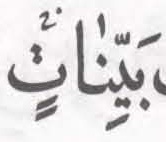 بَيِّنَٰتٍۢ